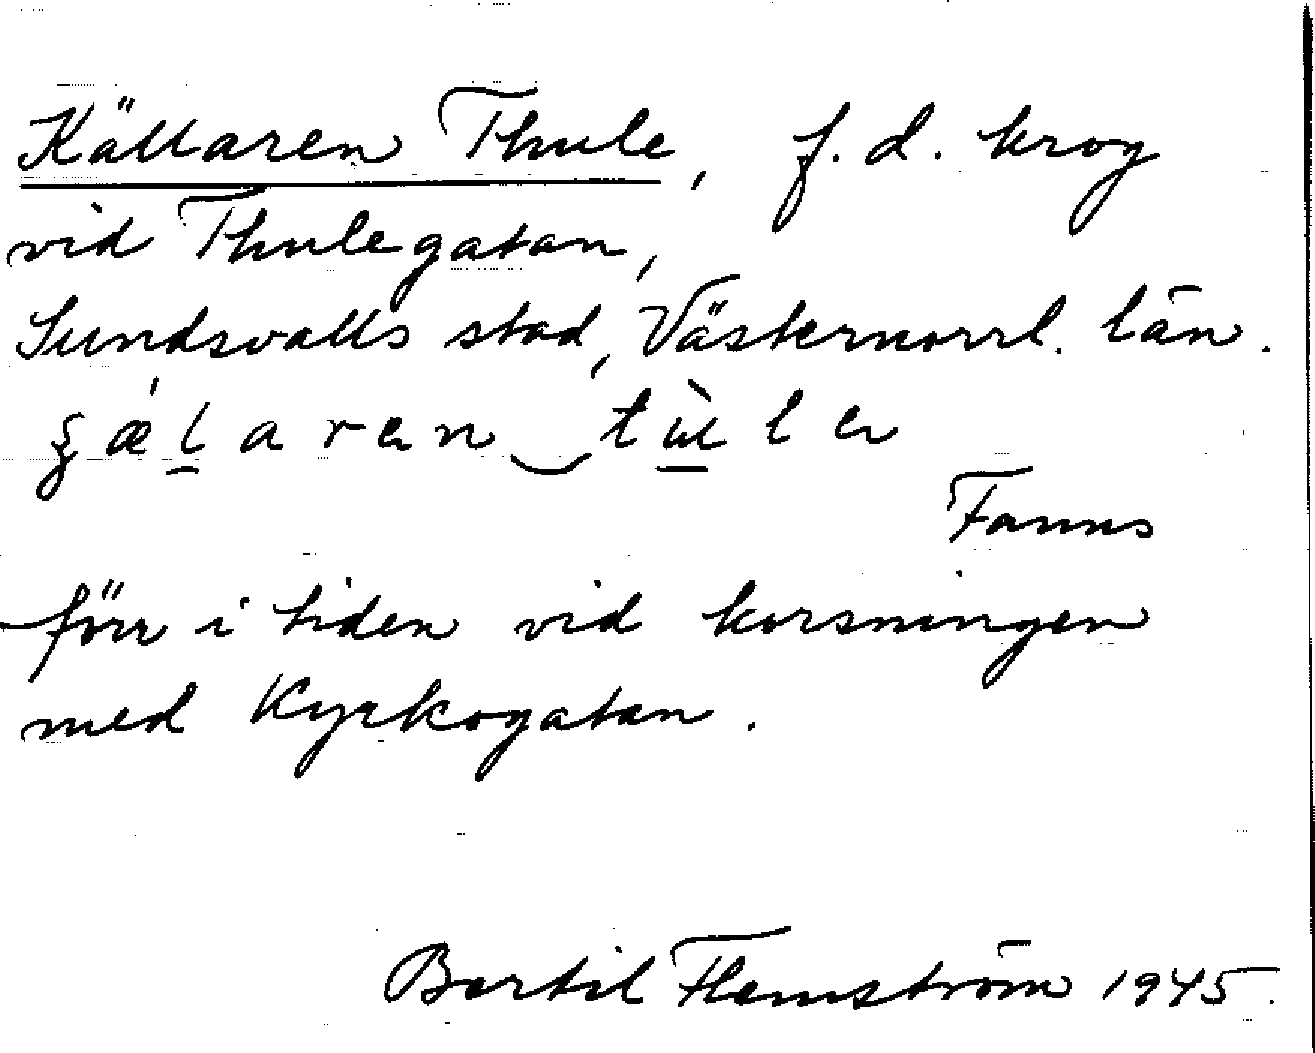 Källaren Thule, f. d. krog
vid Thulegatan,
Sundsvalls stad, Västernorrl. län.
Fanns
förr i tiden vid korsningen
med Kyrkogatan.
Bertil Flemström 1945.